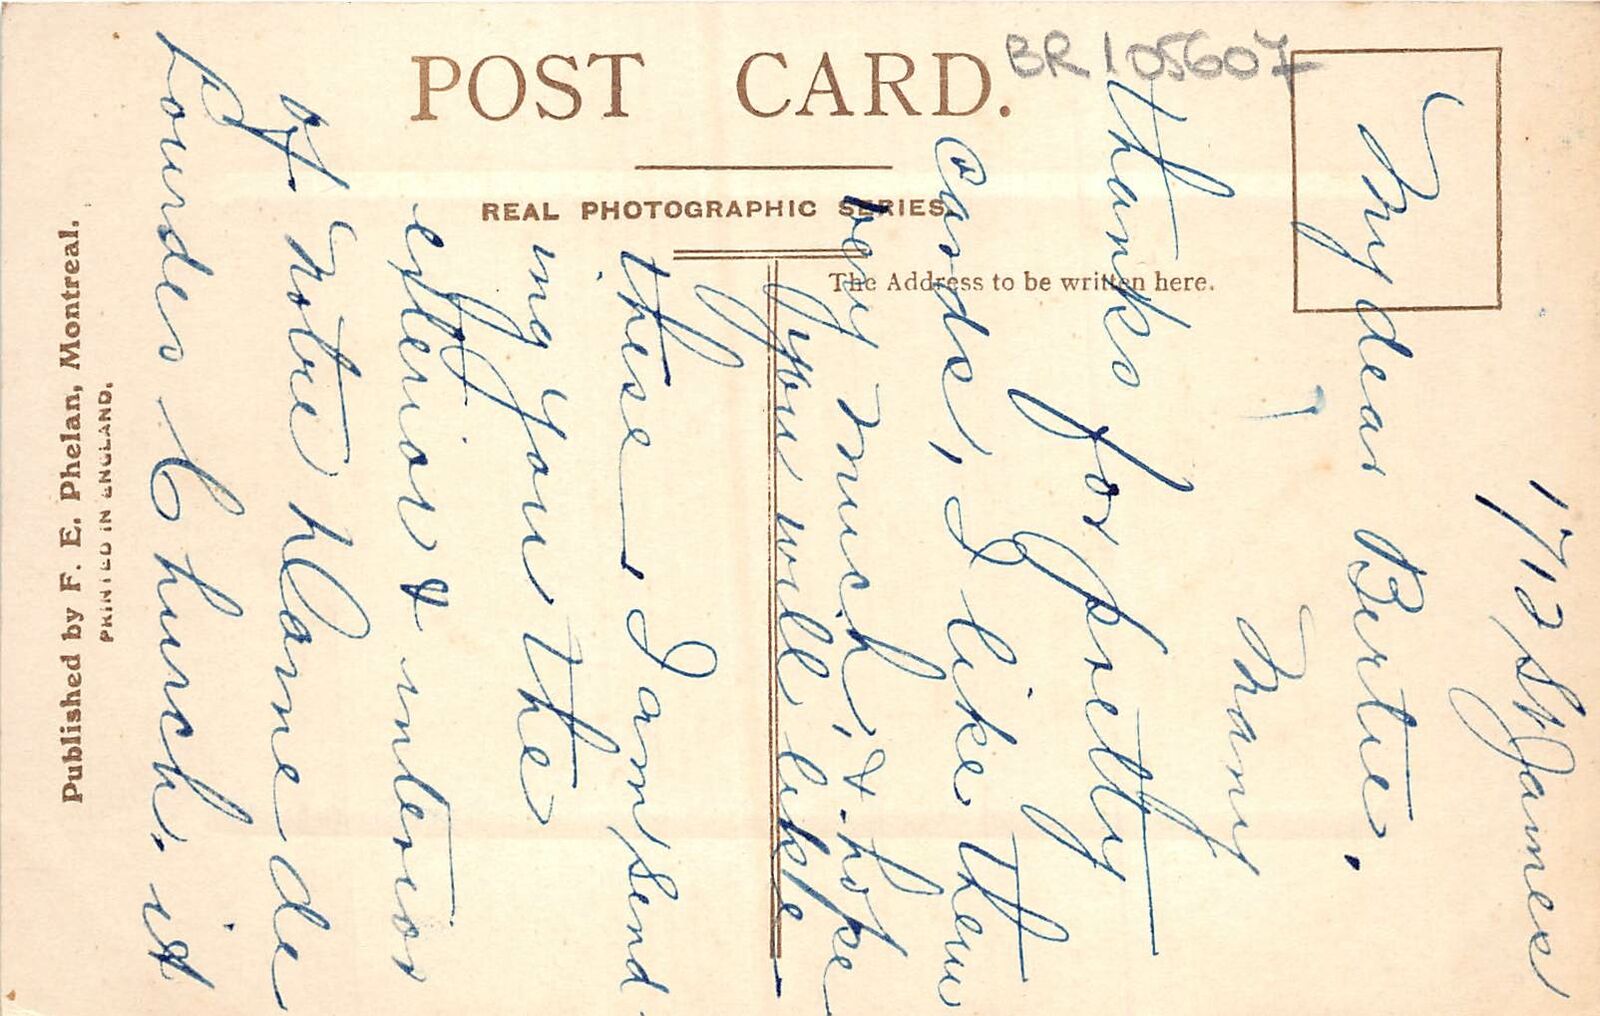 POST CARD.
BR105607
REAL PHOTOGRAPHIC SERIES.
The Address to be written here.
Published by F. E. Phelan, Montreal.
PRINTED IN ENGLAND.
1712 St James
My dear Bertie.
Many
thanks for pretty
cards, I like them
very much, & hope
you will like
these, I am send
ing you the
exterior & interior
of Notre Dame de
Lourdes Church, it